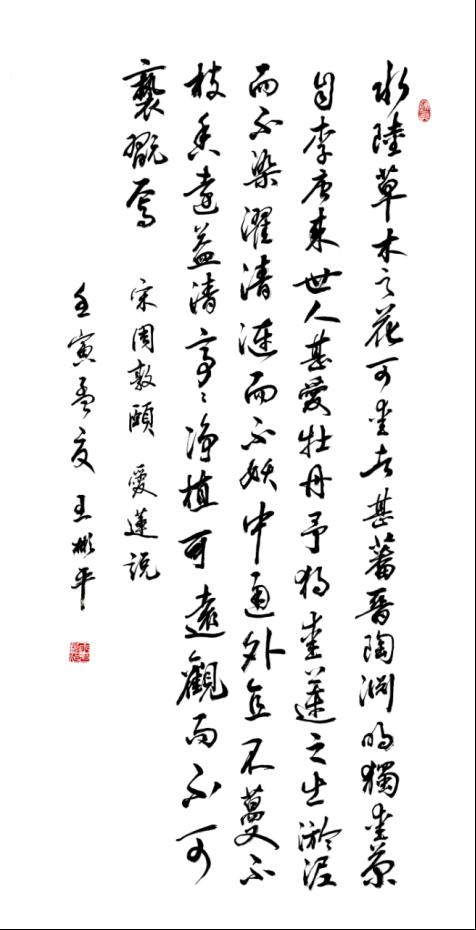 水陸草木之花可爱者甚蕃晋陶渊明獨爱菊
自李唐来世人甚愛牡丹予独爱蓮之出淤泥
而不染濯清漣而不妖中通外直不蔓不
枝香遠益清亭〻净植可遠觀而不可
褻翫焉 宋周敦頤 愛蓮説
壬寅孟夏 王彬平